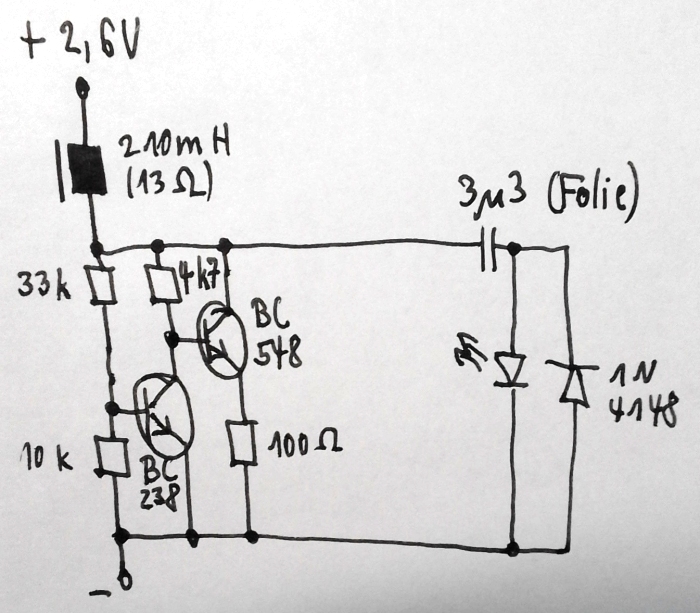 + 2,6V
210mH
(13Ω)
3µ3 (Folie)
33k
4k7
BC
548
1N
4148
10k
100Ω
BC
238
-